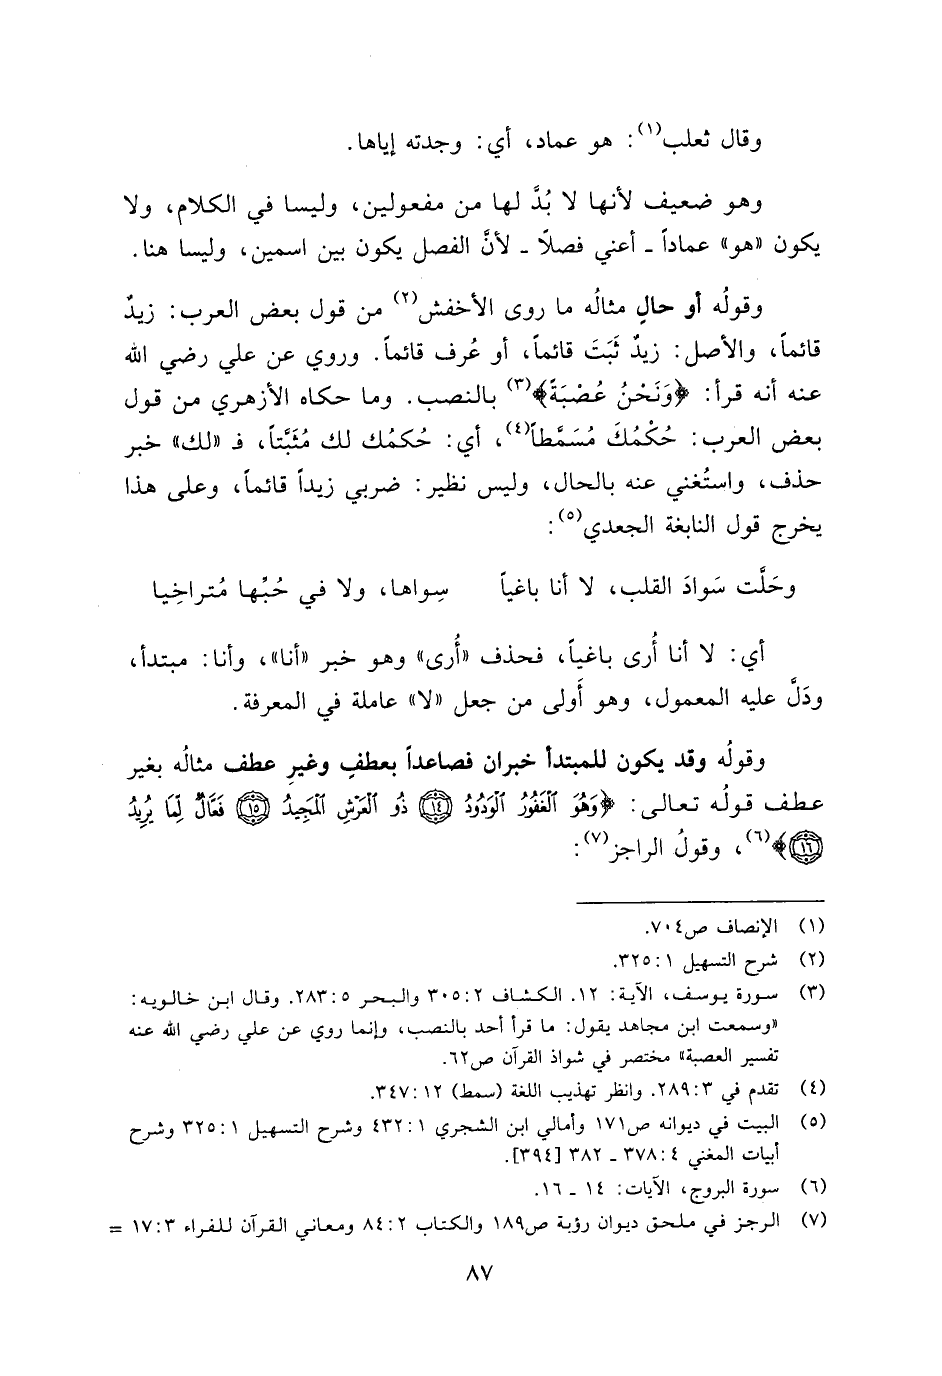 وقال ثعلب(١): هو عماد، أي: وجدته إياها.
وهو ضعيف لأنها لا بُدَّ لها من مفعولين، وليسا في الكلام، ولا
يكون «هو» عماداً ـ أعني فصلًا ـ لأنَّ الفصل يكون بين اسمين، وليسا هنا.
وقولُه أو حالٍ مثالُه ما روى الأخفش(٢) من قول بعض العرب: زيدٌ
قائماً، والأصل: زيدٌ ثَبَتَ قائماً، أو عُرف قائماً. وروي عن علي رضي الله
عنه أنه قرأ: ﴿وَنَحْنُ عُصْبَةً﴾(٣) بالنصب. وما حكاه الأزهري من قول
بعض العرب: حُكْمُكَ مُسَمَّطاً(٤)، أي: حُكمُك لك مُثَبَّتاً، فـ «لك» خبر
حذف، واستُغني عنه بالحال، وليس نظير: ضربي زيداً قائماً، وعلى هذا
يخرج قول النابغة الجعدي(٥):
وحَلَّت سَوادَ القلب، لا أنا باغياً سِواها، ولا في حُبِّها مُتراخِيا
أي: لا أنا أُرى باغياً، فحذف «أُرى» وهو خبر «أنا»، وأنا: مبتدأ،
ودَلَّ عليه المعمول، وهو أَولى من جعل «لا» عاملة في المعرفة.
وقولُه وقد يكون للمبتدأ خبران فصاعداً بعطفٍ وغيرِ عطف مثالُه بغير
عطف قولُه تعالى: ﴿وَهُوَ الْغَفُورُ الْوَدُودُ ١٤ ذُو الْعَرْشِ الْمَجِيدُ ١٥ فَعَّالٌ لِّمَا يُرِيدُ
١٦﴾(٦)، وقولُ الراجز(٧):
(١) الإنصاف ص٧٠٤.
(٢) شرح التسهيل ١: ٣٢٥.
(٣) سورة يوسف، الآية: ١٢. الكشاف ٢: ٣٠٥ والبحر ٥: ٢٨٣. وقال ابن خالويه:
«وسمعت ابن مجاهد يقول: ما قرأ أحد بالنصب، وإنما روي عن علي رضي الله عنه
تفسير العصبة» مختصر في شواذ القرآن ص٦٢.
(٤) تقدم في ٣: ٢٨٩. وانظر تهذيب اللغة (سمط) ١٢: ٣٤٧.
(٥) البيت في ديوانه ص١٧١ وأمالي ابن الشجري ١: ٤٣٢ وشرح التسهيل ١: ٣٢٥ وشرح
أبيات المغني ٤: ٣٧٨ ـ ٣٨٢ [٣٩٤].
(٦) سورة البروج، الآيات: ١٤ ـ ١٦.
(٧) الرجز في ملحق ديوان رؤبة ص١٨٩ والكتاب ٢: ٨٤ ومعاني القرآن للفراء ٣: ١٧ =
٨٧